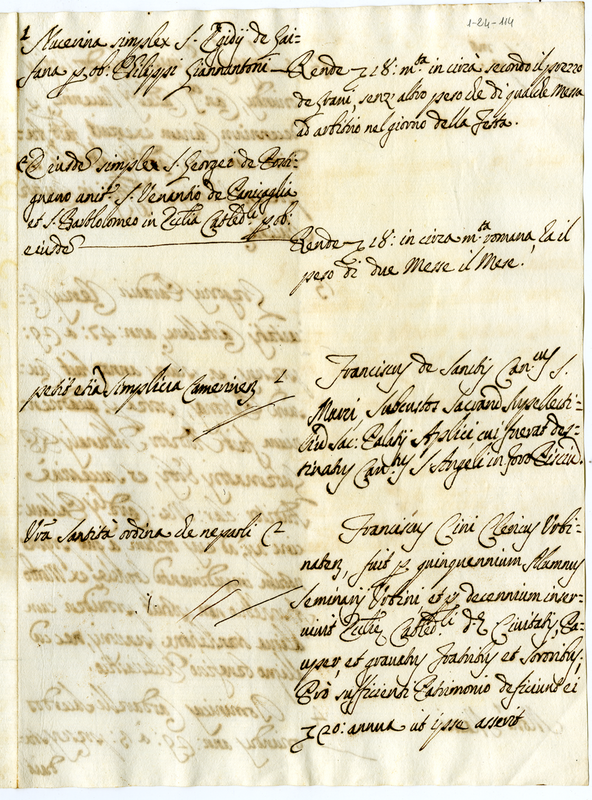 1-24-114
1 Nucerina simplex S. Egidij de Gai-
fana p. ob. Philippi Giannantoni
Rende 18: m.ta in circa secondo il prezzo
de grani, senz'altro peso che di qualche Messa
ad arbitrio nel giorno della festa.
simplex S. Georgei de
gnano unit. S. Venantio de Caricaglia
et S. Bartholomeo in p. ob:
eiusd.
Rende 18: in circa m.ta romana, ha il
peso di due Messe il Mese.
petijt etia simplicia Camerinen
Franciscus de Sanctis Can.cus S.
Mariae, Subcustos Supellecti-
Sac: Palatij Aplici cui fuerat des-
tinatus S. Angeli in foro
Vra Santità ordina che ne parli
Franciscus Cini Clericus Urbi-
naten, fuit p quinquennium Alumnus
Seminarij Urbini et p decennium inser-
viuit Civitatis, Pa-
uper, et gravatus fratribus et sororibus,
Pro sufficienti Patrimonio deficiunt ei
20: annua ut ipse asserit